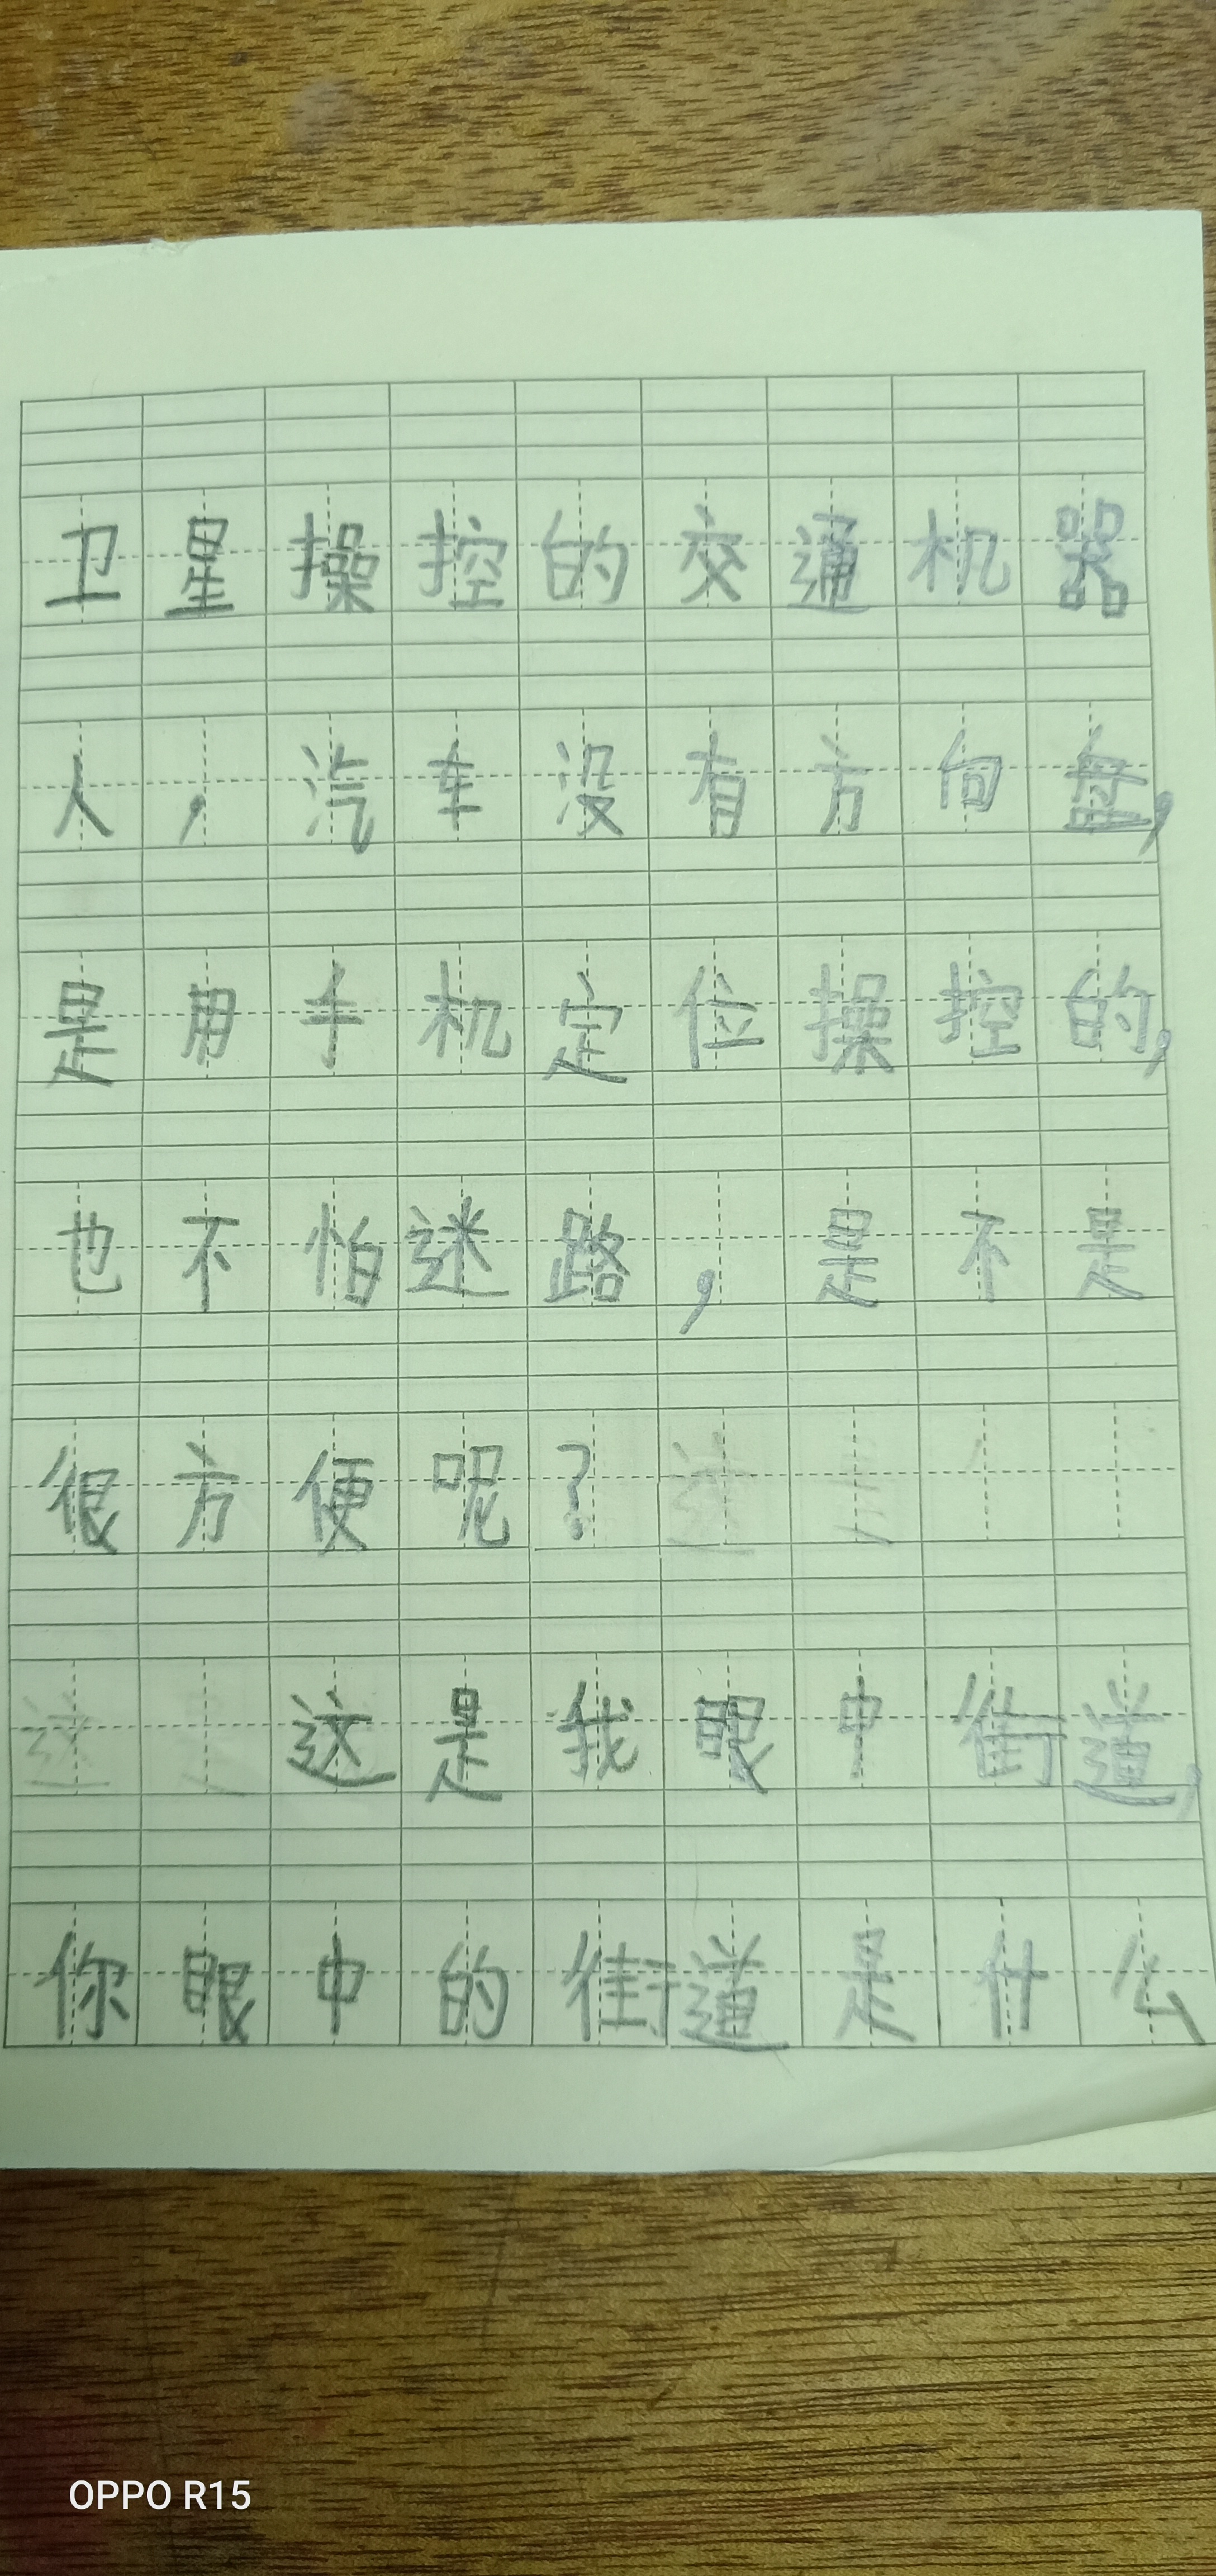 卫星操控的交通机器
人，汽车没有方向盘，
是用手机定位操控的，
也不怕迷路，是不是
很方便呢？
这是我眼中街道，
你眼中的街道是什么
OPPO R15